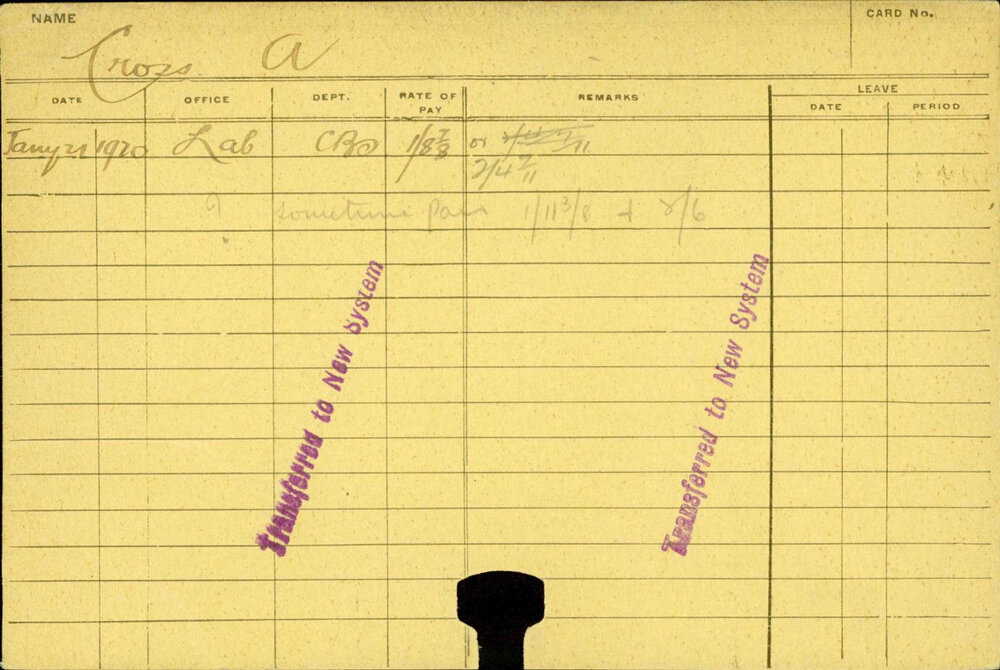 NAME
CARD No.
Cross A
DATE OFFICE DEPT. RATE OF PAY REMARKS LEAVE
DATE PERIOD
Jany 21 1920 Lab CBO 1/8 7/8 or
2/4 7/11
sometime 1/11 3/8 + 2/6
Transferred to New System
Transferred to New System